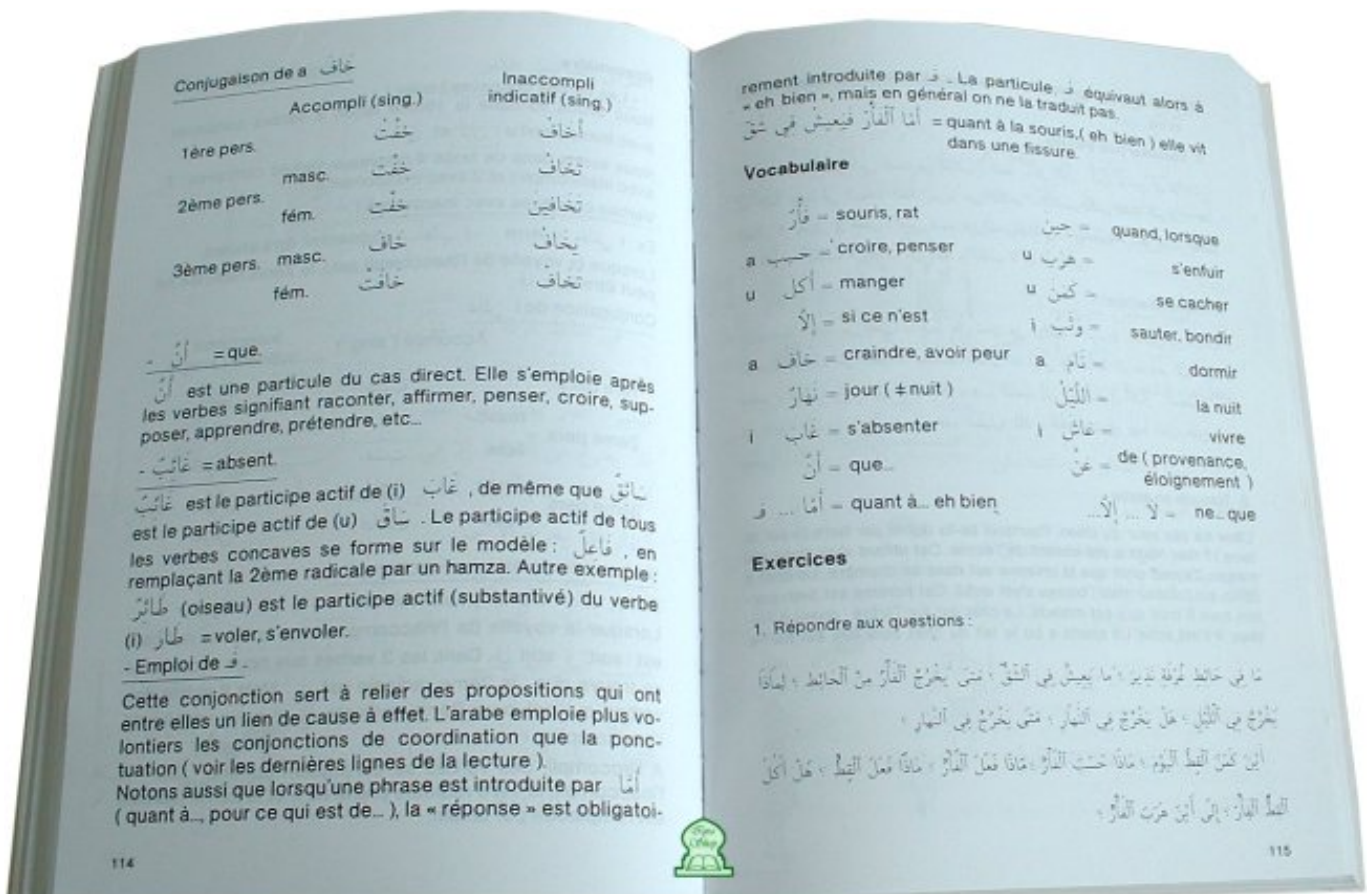 Conjugaison de a خَافَ
Accompli (sing.) Inaccompli indicatif (sing.)
1ère pers. خِفْتُ أَخَافُ
2ème pers. masc. خِفْتَ تَخَافُ
fém. خِفْتِ تَخَافِينَ
3ème pers. masc. خَافَ يَخَافُ
fém. خَافَتْ تَخَافُ
- أَنَّ = que.
أَنَّ est une particule du cas direct. Elle s'emploie après
les verbes signifiant raconter, affirmer, penser, croire, sup-
poser, apprendre, prétendre, etc...
- غَائِبٌ = absent.
غَائِبٌ est le participe actif de (i) غَابَ , de même que سَائِقٌ
est le participe actif de (u) سَاقَ . Le participe actif de tous
les verbes concaves se forme sur le modèle : فَاعِلٌ , en
remplaçant la 2ème radicale par un hamza. Autre exemple :
طَائِرٌ (oiseau) est le participe actif (substantivé) du verbe
(i) طَارَ = voler, s'envoler.
- Emploi de فَـ .
Cette conjonction sert à relier des propositions qui ont
entre elles un lien de cause à effet. L'arabe emploie plus vo-
lontiers les conjonctions de coordination que la ponc-
tuation ( voir les dernières lignes de la lecture ).
Notons aussi que lorsqu'une phrase est introduite par أَمَّا
( quant à..., pour ce qui est de... ), la « réponse » est obligatoi-
114
rement introduite par فَـ . La particule فَـ équivaut alors à
« eh bien », mais en général on ne la traduit pas.
أَمَّا ٱلْفَأْرُ فَيَعِيشُ فِي شَقٍّ = quant à la souris,( eh bien ) elle vit
dans une fissure.
Vocabulaire
فَأْرٌ = souris, rat حِينَ = quand, lorsque
a حَسِبَ = croire, penser u هَرَبَ = s'enfuir
u أَكَلَ = manger u كَمَنَ = se cacher
إِلاَّ = si ce n'est i وَثَبَ = sauter, bondir
a خَافَ = craindre, avoir peur a نَامَ = dormir
نَهَارٌ = jour ( ≠ nuit ) اللَّيْلُ = la nuit
i غَابَ = s'absenter i عَاشَ = vivre
أَنَّ = que... عَنْ = de ( provenance,
éloignement )
أَمَّا ... فَـ = quant à... eh bien لاَ ... إِلاَّ... = ne... que
Exercices
1. Répondre aux questions :
مَا فِي حَائِطِ غُرْفَةِ نَذِيرَ ؟ مَا يَعِيشُ فِي ٱلشَّقِّ ؟ مَتَى يَخْرُجُ ٱلْفَأْرُ مِنَ ٱلْحَائِطِ ؟ لِمَاذَا
يَخْرُجُ فِي ٱللَّيْلِ ؟ هَلْ يَخْرُجُ فِي ٱلنَّهَارِ ؟ مَتَى يَخْرُجُ فِي ٱلنَّهَارِ ؟
أَيْنَ كَمَنَ ٱلْقِطُّ ٱلْيَوْمَ ؟ مَاذَا حَسِبَ ٱلْفَأْرُ ؟ مَاذَا فَعَلَ ٱلْفَأْرُ ؟ مَاذَا فَعَلَ ٱلْقِطُّ ؟ هَلْ أَكَلَ
ٱلْقِطُّ ٱلْفَأْرَ ؟ إِلَى أَيْنَ هَرَبَ ٱلْفَأْرُ ؟
115